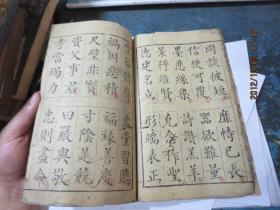 罔談彼短
靡恃已長
信使可覆
器欲難量
墨悲絲染
詩讚羔羊
景行維賢
克念作聖
德建名立
形端表正
傳聲
虛堂習聽
禍因惡積
福緣善慶
尺璧非寶
寸陰是競
資父事君
曰嚴與敬
孝當竭力
忠則盡命